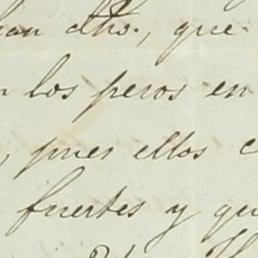 han dho., que
n los peros en
, pues ellos c
fuertes y qu